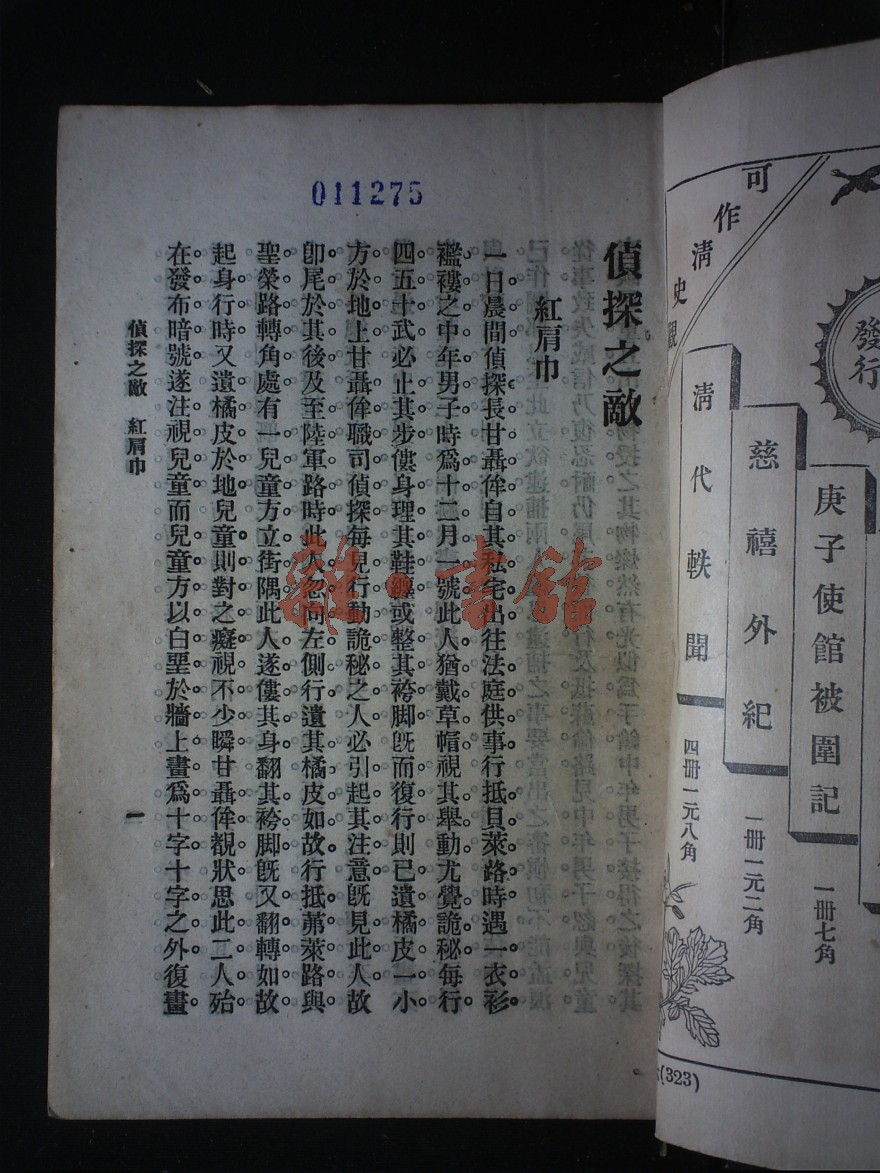 可作淸史觀
發行
庚子使館被圍記
一冊七角
慈禧外紀
一冊一元二角
淸代軼聞
四冊一元八角
(323)
011275
偵探之敵
紅肩巾
一日晨間偵探長甘聶侔自其私宅出往法庭供事行抵貝萊路時遇一衣衫
襤褸之中年男子時爲十二月一號此人猶戴草帽視其舉動尤覺詭秘每行
四五十武必止其步僂身理其鞋纏或整其袴脚旣而復行則已遺橘皮一小
方於地上甘聶侔職司偵探每見行動詭秘之人必引起其注意旣見此人故
卽尾於其後及至陸軍路時此人忽向左側行遺其橘皮如故行抵茀萊路與
聖榮路轉角處有一兒童方立街隅此人遂僂其身翻其袴脚旣又翻轉如故
起身行時又遺橘皮於地兒童則對之癡視不少瞬甘聶侔覩狀思此二人殆
在發布暗號遂注視兒童而兒童方以白堊於牆上畫爲十字十字之外復畫
偵探之敵 紅肩巾
一
雜·書館